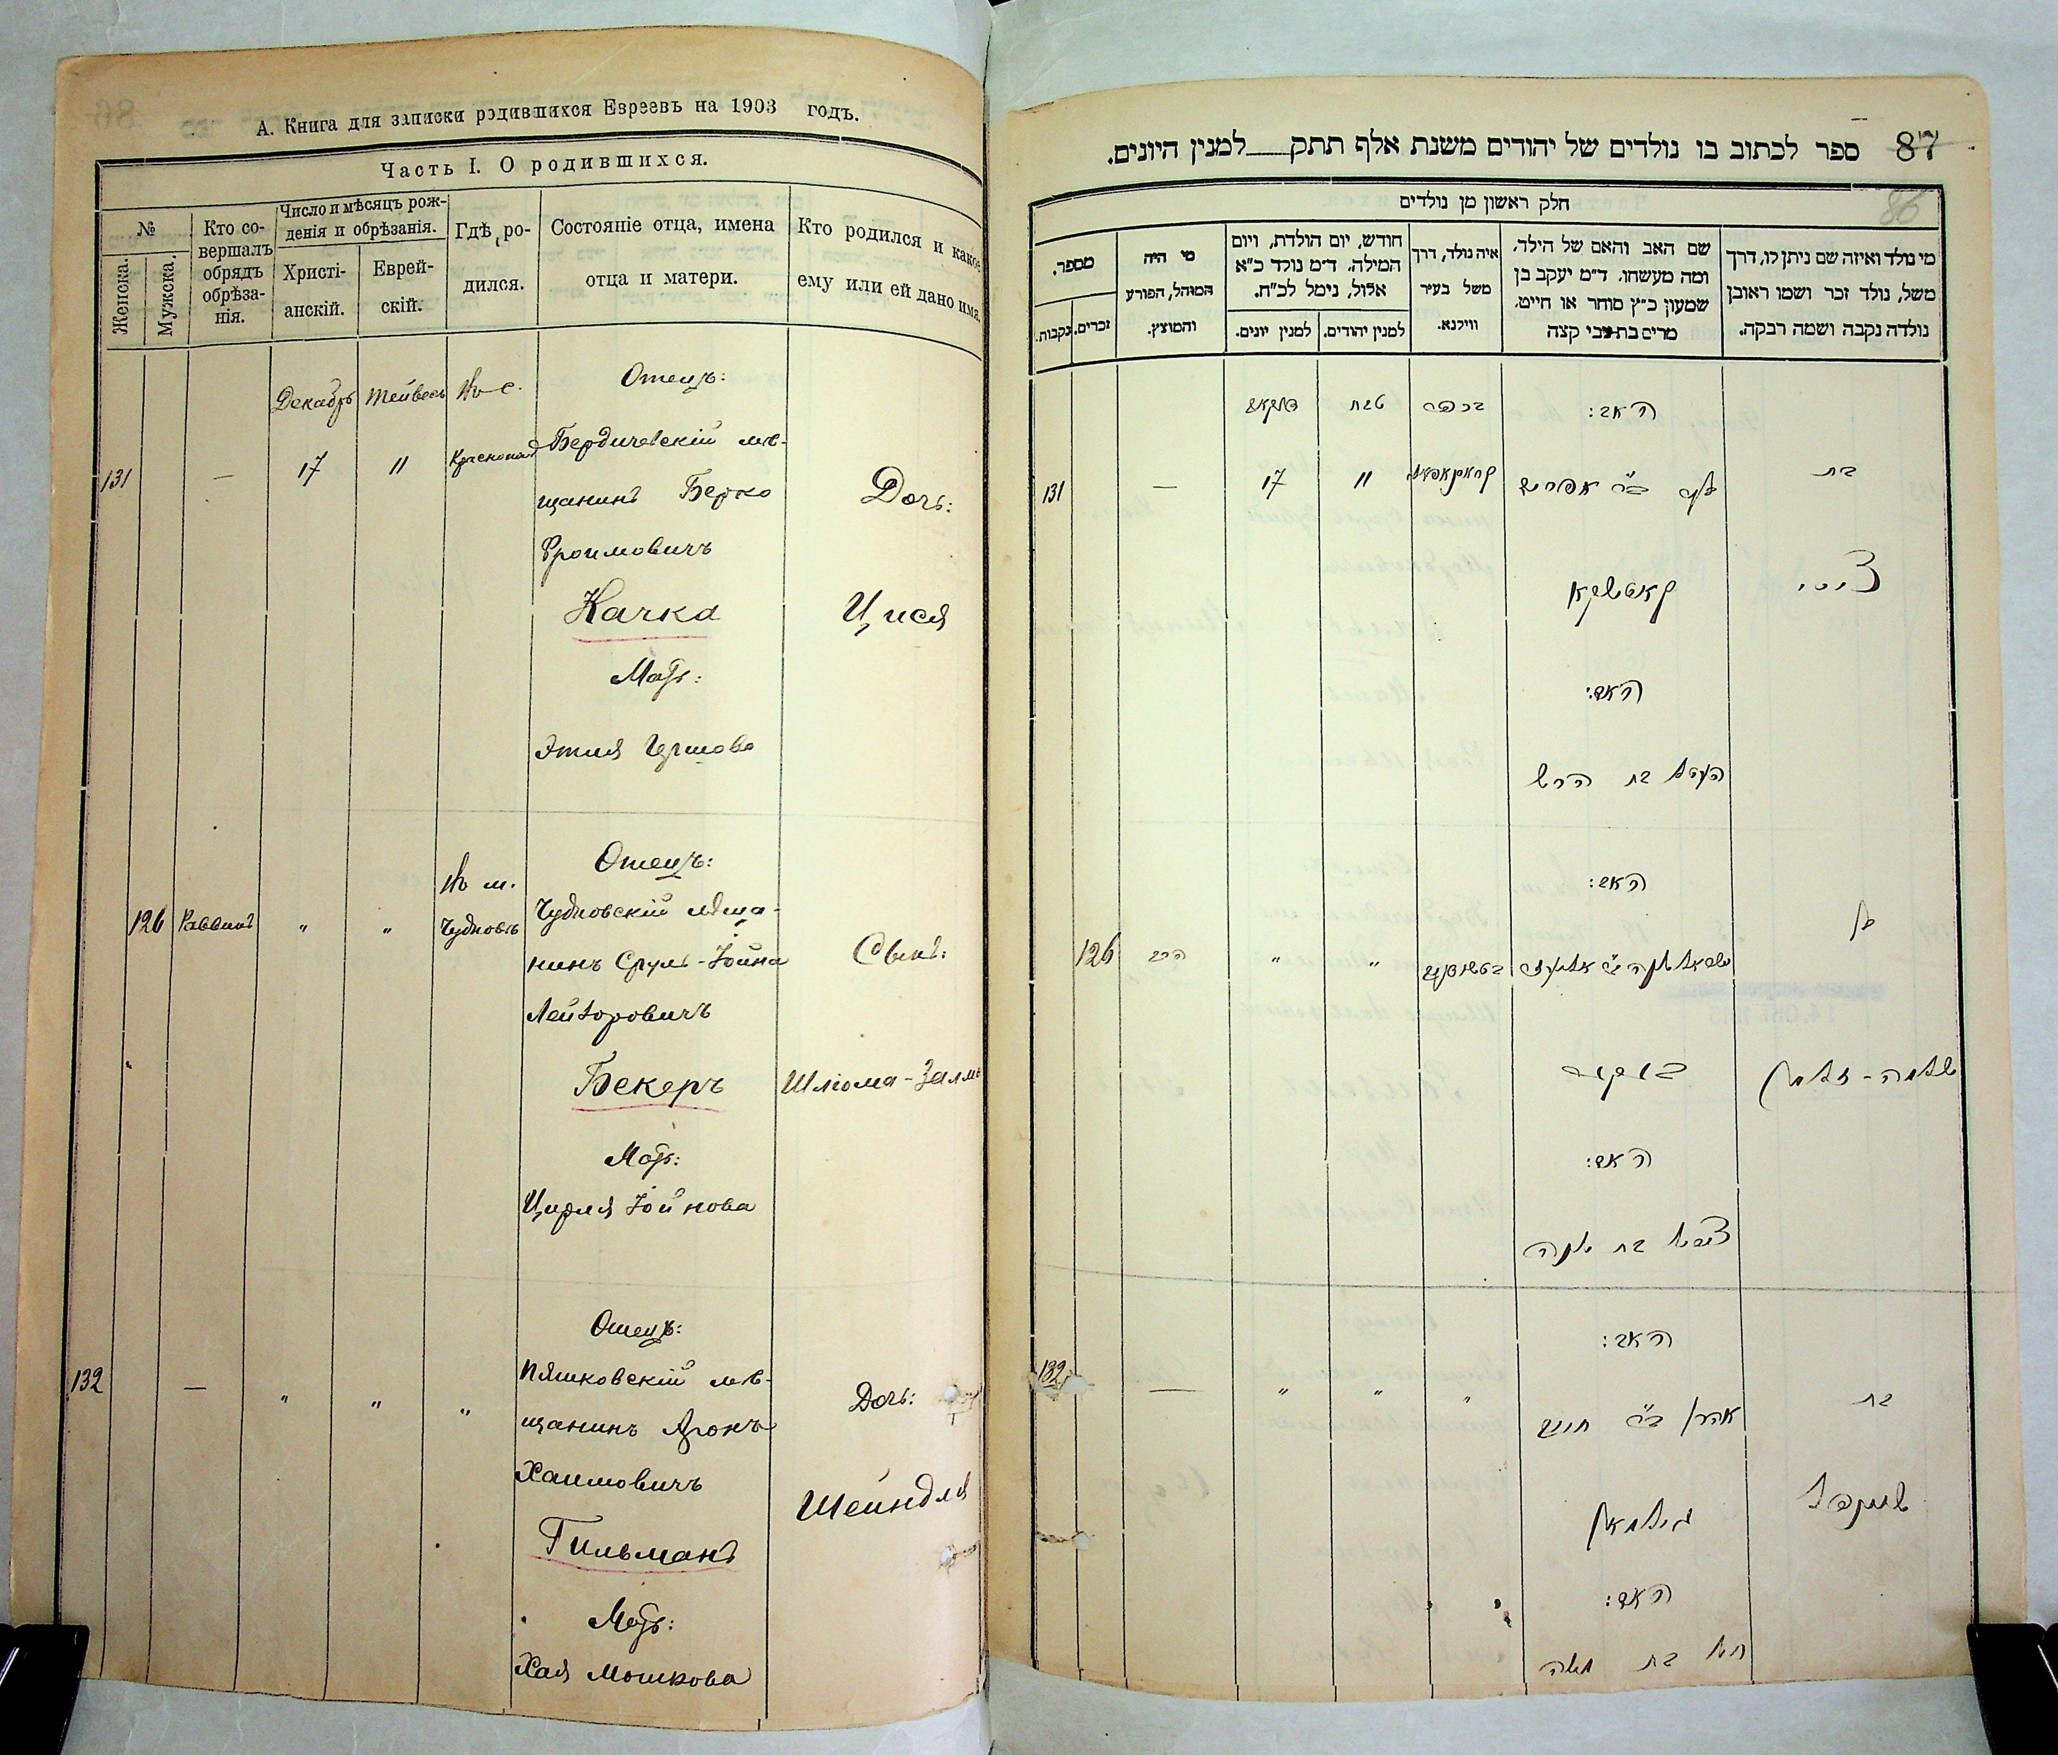 А. Книга для записки родившихся Евреевъ на 1903 годъ.
Часть I. О родившихся.
№
Женска.
Мужска.
Кто со-
вершалъ
обрядъ
обрѣза-
нія.
Число и мѣсяцъ рож-
денія и обрѣзанія.
Христі-
анскій.
Еврей-
скій.
Гдѣ ро-
дился.
Состояніе отца, имена
отца и матери.
Кто родился и какое
ему или ей дано имя.
Декабрь Тейвесъ Въ с.
Отецъ:
131 — 17 11
Бердичевскій мѣ-
щанинъ Берко
Фроимовичъ
Качка
Мать:
Этля Гершова
Дочь:
Цися
Въ м.
126 Раввинъ " " Чудновѣ
Отецъ:
Чудновскій мѣща-
нинъ Сруль-Іойна
Лейзоровичъ
Бекеръ
Мать:
Цирля Іойнова
Сынъ:
Шлiома-Залм
132 — " " "
Отецъ:
Пятковскій мѣ-
щанинъ Аронъ
Хаимовичъ
Гильманъ
Мать:
Хая Мошкова
Дочь:
Шейндля
87
ספר לכתוב בו נולדים של יהודים משנת אלף תתק למנין היונים.
86
חלק ראשון מן נולדים
מי נולד ואיזה שם ניתן לו, דרך
משל, נולד זכר ושמו ראובן
נולדה נקבה ושמה רבקה.
שם האב והאם של הילד,
ומה מעשהו. ד״מ יעקב בן
שמעון כ״ץ סוחר או חייט,
מרים בת צבי קצה
איה נולד, דרך
משל בעיר
ווילנא.
חודש, יום הולדת, ויום
המילה. ד״מ נולד כ״א
אלול, נימל לכ״ח.
למנין יהודים.
למנין יונים.
מי היה
המוהל, הפורע
והמוצץ.
מספר.
זכרים.
נקבות.
האב:
בכפר
טבת
דעקאב
131 — 17 11
בת
קאטשקא
ציסי
האם:
העטל בת הרש
האב:
בן
126 הרב " "
בעקער
שלמה-זלמן
האם:
צירל בת יונה
האב:
132 — " " "
בת
אהרן ב״ר חיים
גילמאן
שיינדל
האם:
חיה בת משה